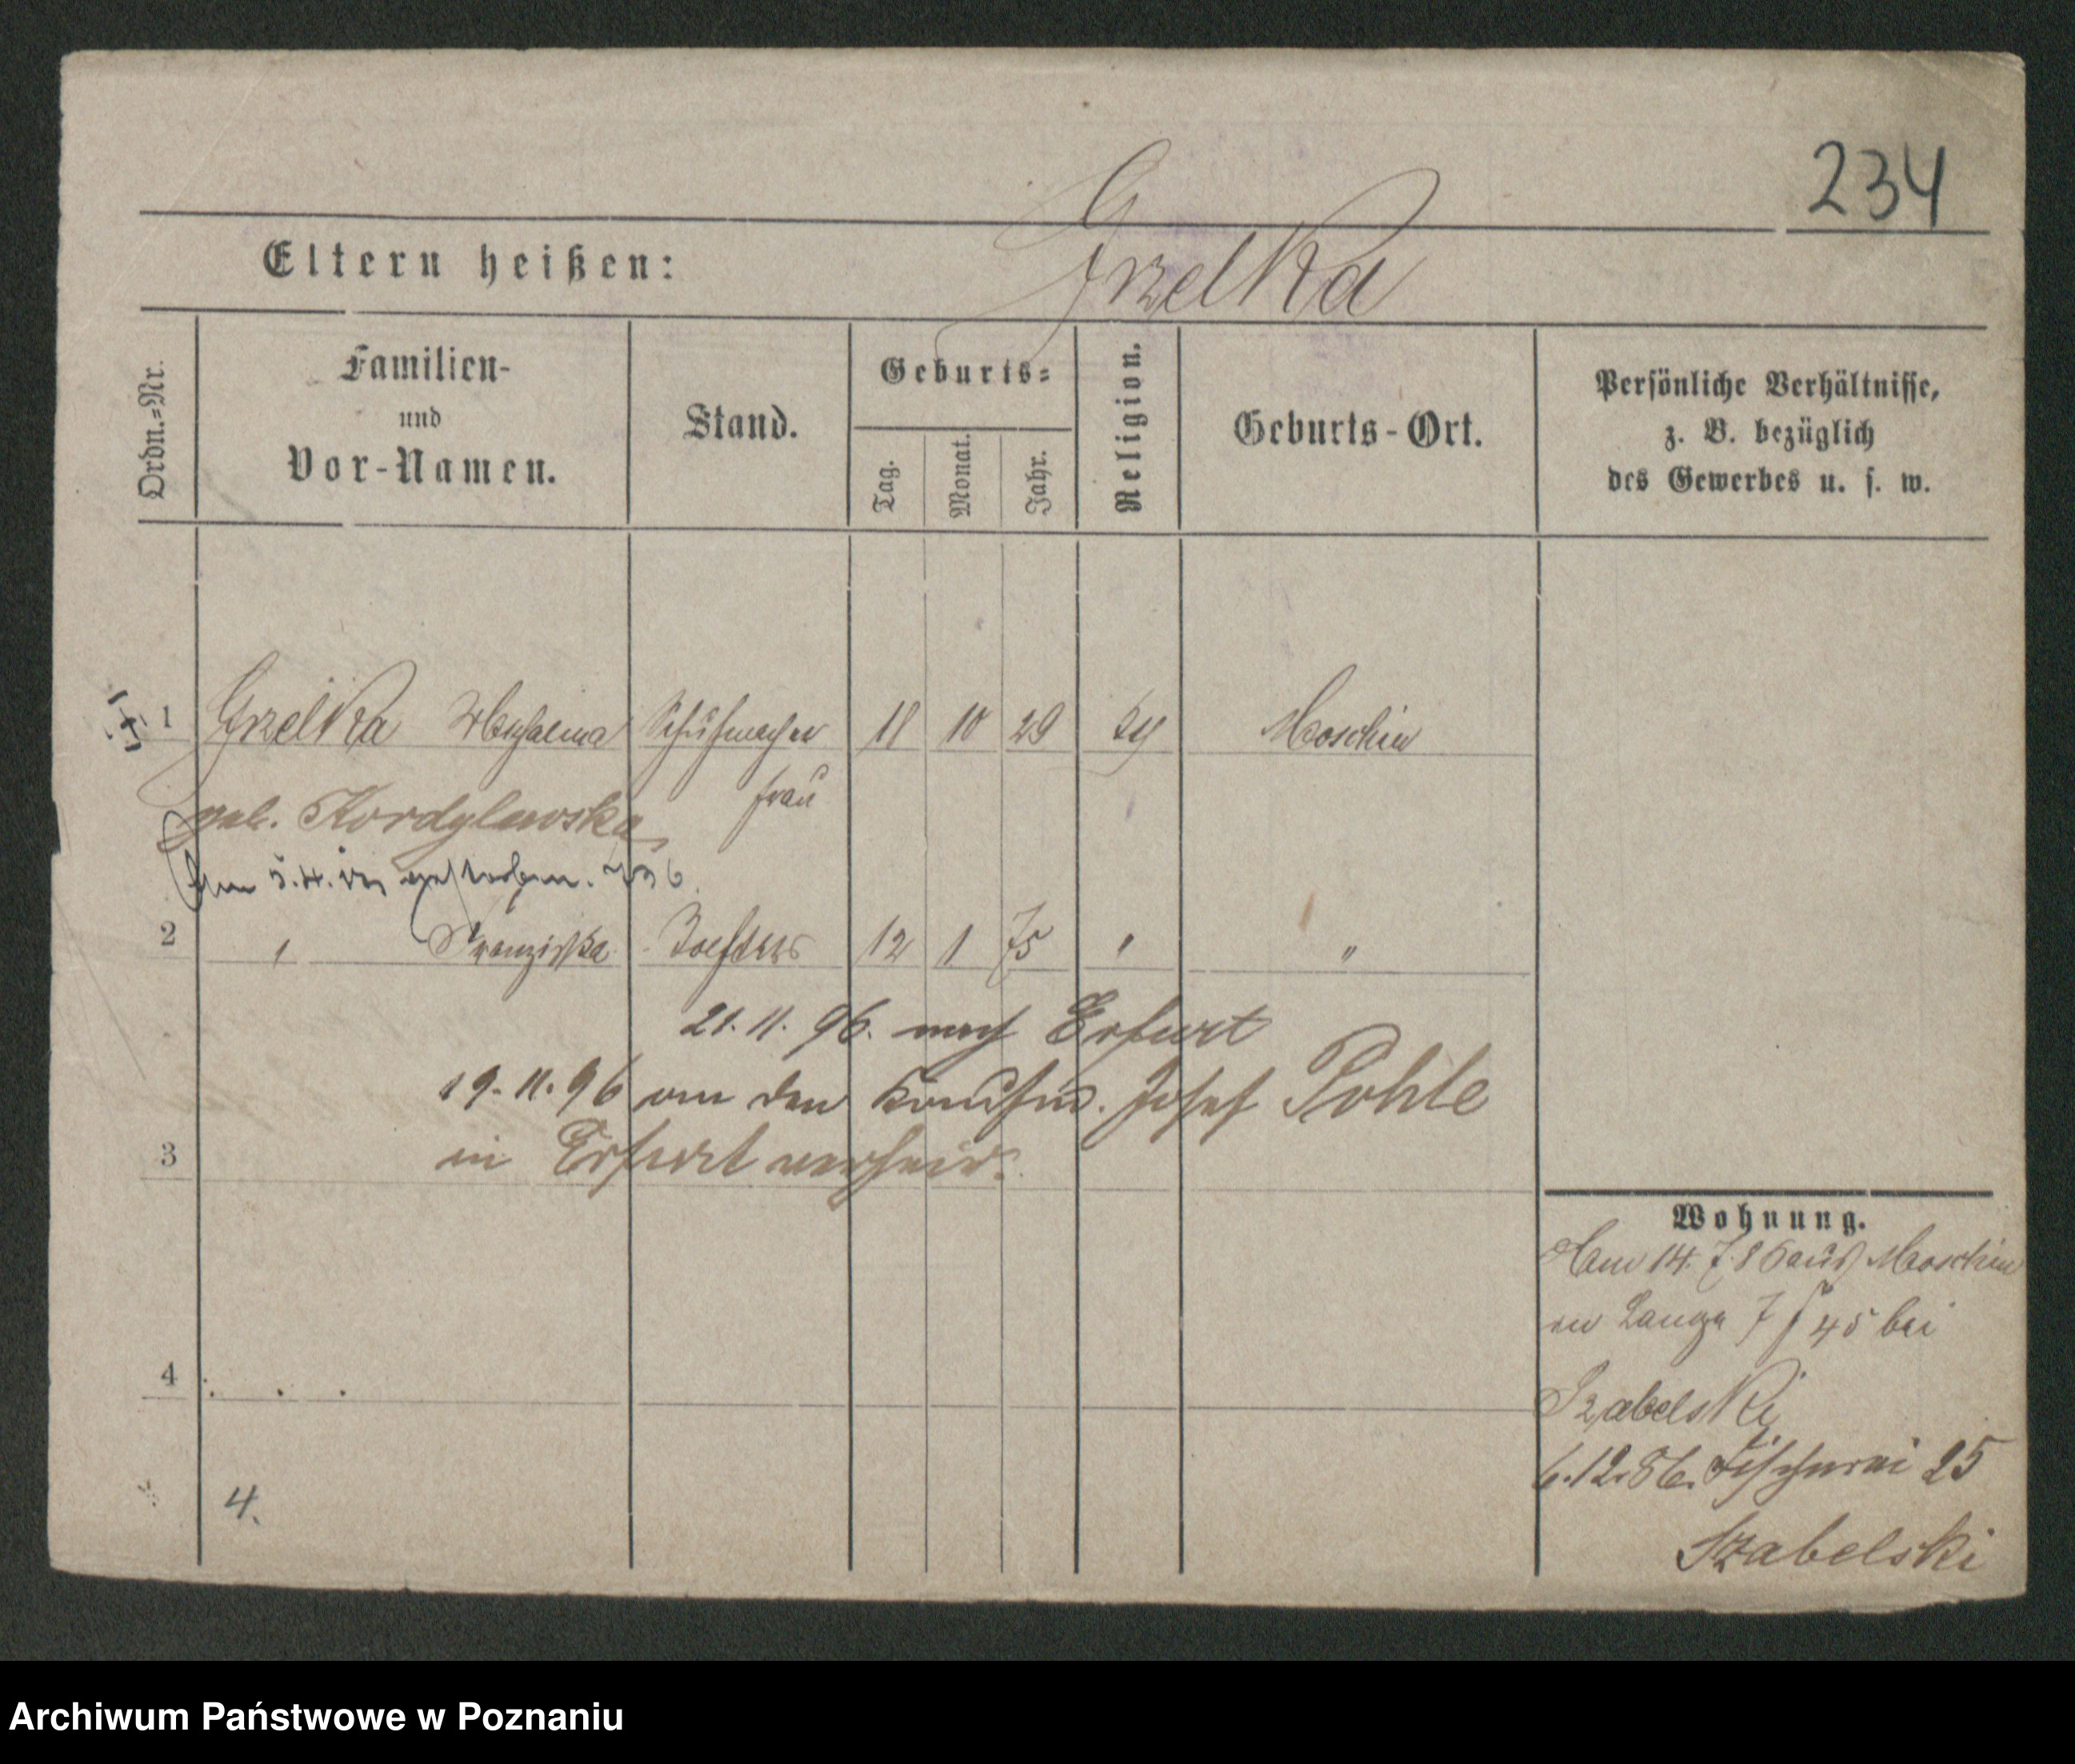 234
Eltern heißen: Grzelka
Ordn.=Nr.
Familien-
und
Vor-Namen.
Stand.
Geburts=
Tag.
Monat.
Jahr.
Religion.
Geburts-Ort.
Persönliche Verhältnisse,
z. B. bezüglich
des Gewerbes u. s. w.
1 Grzelka Schuhmacher 18 10 29 Moschin
frau
geb. Kordylewska
Am 5.4. gestorben.
2 " Franziska 12 1 75 " "
21. 11. 96. nach Erfurt
19. 11. 96 an den Josef Pohle
3 in Erfurt verheir.
Wohnung.
Am 14. 7. 86 aus Moschin
Lange 45 bei
4 . . .
Szabelski
6. 12. 86. Fischerei 25
4.
Szabelski
Archiwum Państwowe w Poznaniu